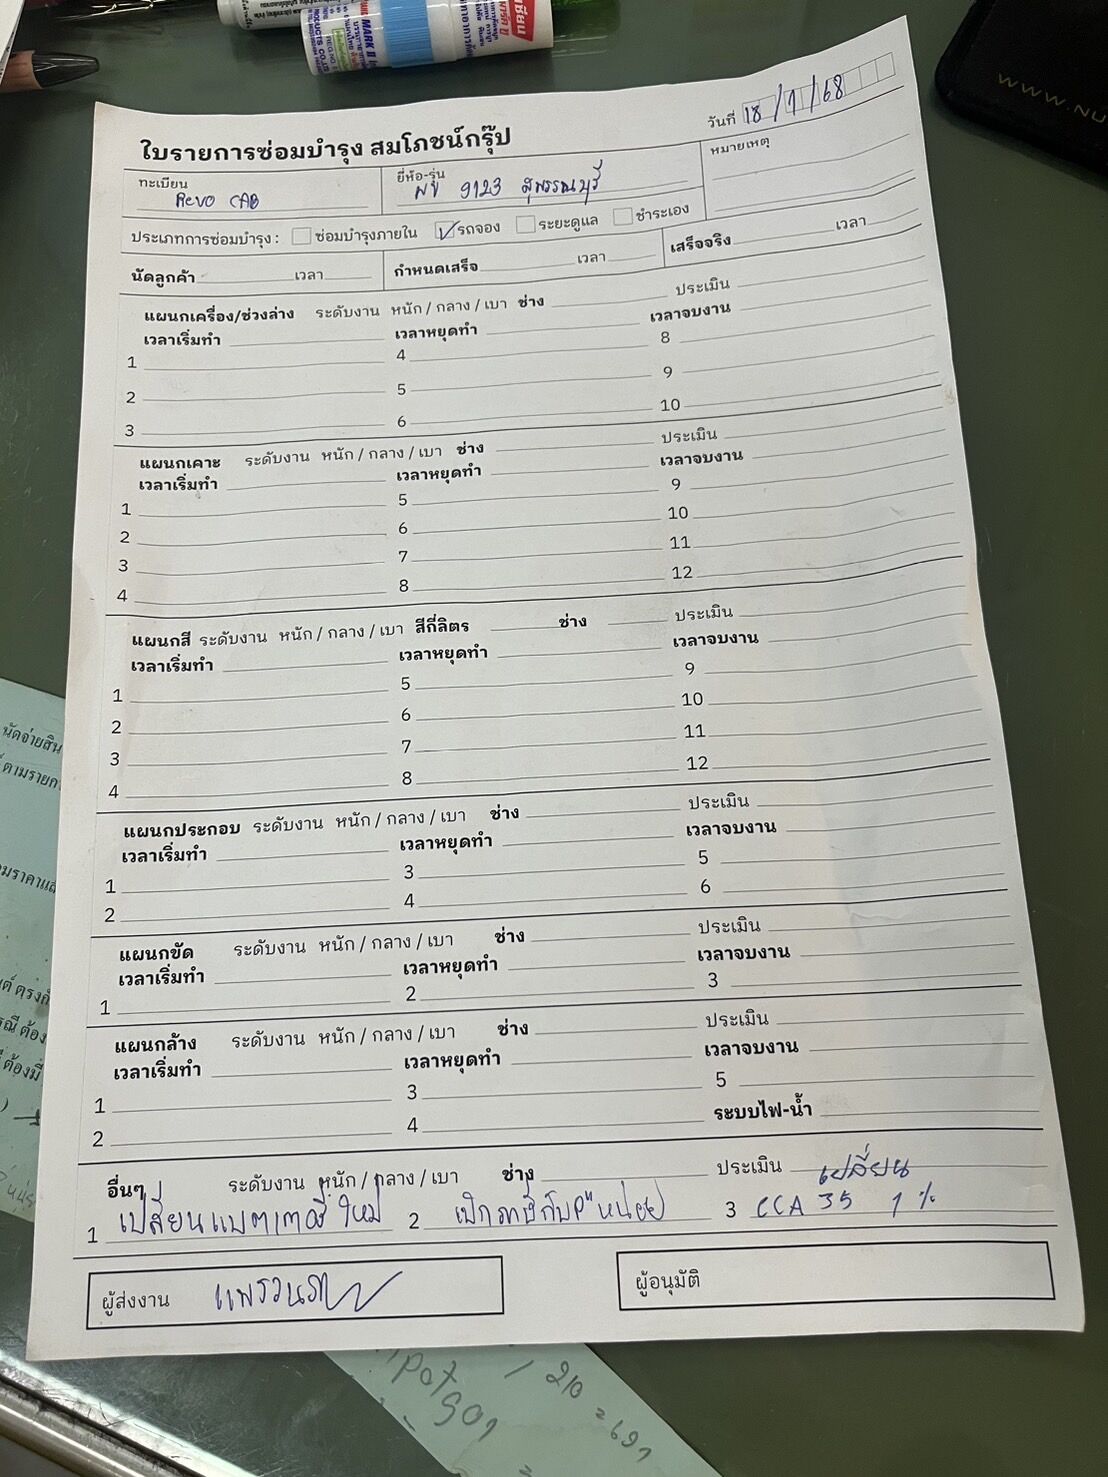 MARK II
PRODUCTS CO.,LTD.
เซียน
WWW.NU
วันที่ 18/1/68
ใบรายการซ่อมบำรุง สมโภชน์กรุ๊ป
ทะเบียน Revo CAB ยี่ห้อ-รุ่น 9123 สุพรรณบุรี หมายเหตุ
ประเภทการซ่อมบำรุง : ซ่อมบำรุงภายใน รถจอง ระยะดูแล ชำระเอง
นัดลูกค้า เวลา กำหนดเสร็จ เวลา เสร็จจริง เวลา
แผนกเครื่อง/ช่วงล่าง ระดับงาน หนัก / กลาง / เบา ช่าง ประเมิน
เวลาเริ่มทำ เวลาหยุดทำ เวลาจบงาน
1 4 8
2 5 9
3 6 10
แผนกเคาะ ระดับงาน หนัก / กลาง / เบา ช่าง ประเมิน
เวลาเริ่มทำ เวลาหยุดทำ เวลาจบงาน
1 5 9
2 6 10
3 7 11
4 8 12
แผนกสี ระดับงาน หนัก / กลาง / เบา สีกี่ลิตร ช่าง ประเมิน
เวลาเริ่มทำ เวลาหยุดทำ เวลาจบงาน
1 5 9
2 6 10
3 7 11
4 8 12
แผนกประกอบ ระดับงาน หนัก / กลาง / เบา ช่าง ประเมิน
เวลาเริ่มทำ เวลาหยุดทำ เวลาจบงาน
1 3 5
2 4 6
แผนกขัด ระดับงาน หนัก / กลาง / เบา ช่าง ประเมิน
เวลาเริ่มทำ เวลาหยุดทำ เวลาจบงาน
1 2 3
แผนกล้าง ระดับงาน หนัก / กลาง / เบา ช่าง ประเมิน
เวลาเริ่มทำ เวลาหยุดทำ เวลาจบงาน
1 3 5
2 4 ระบบไฟ-น้ำ
อื่นๆ ระดับงาน หนัก / กลาง / เบา ช่าง ประเมิน เปลี่ยน
1 เปลี่ยนแบตเตอรี่ใหม่ 2 เบิกภาษีกับP'หน่อย 3 CCA 35 1 %
ผู้ส่งงาน ผู้อนุมัติ
นัดจ่ายสิน
ตามรายกา
มราคาแล
ต้อง
ต้องมี
210